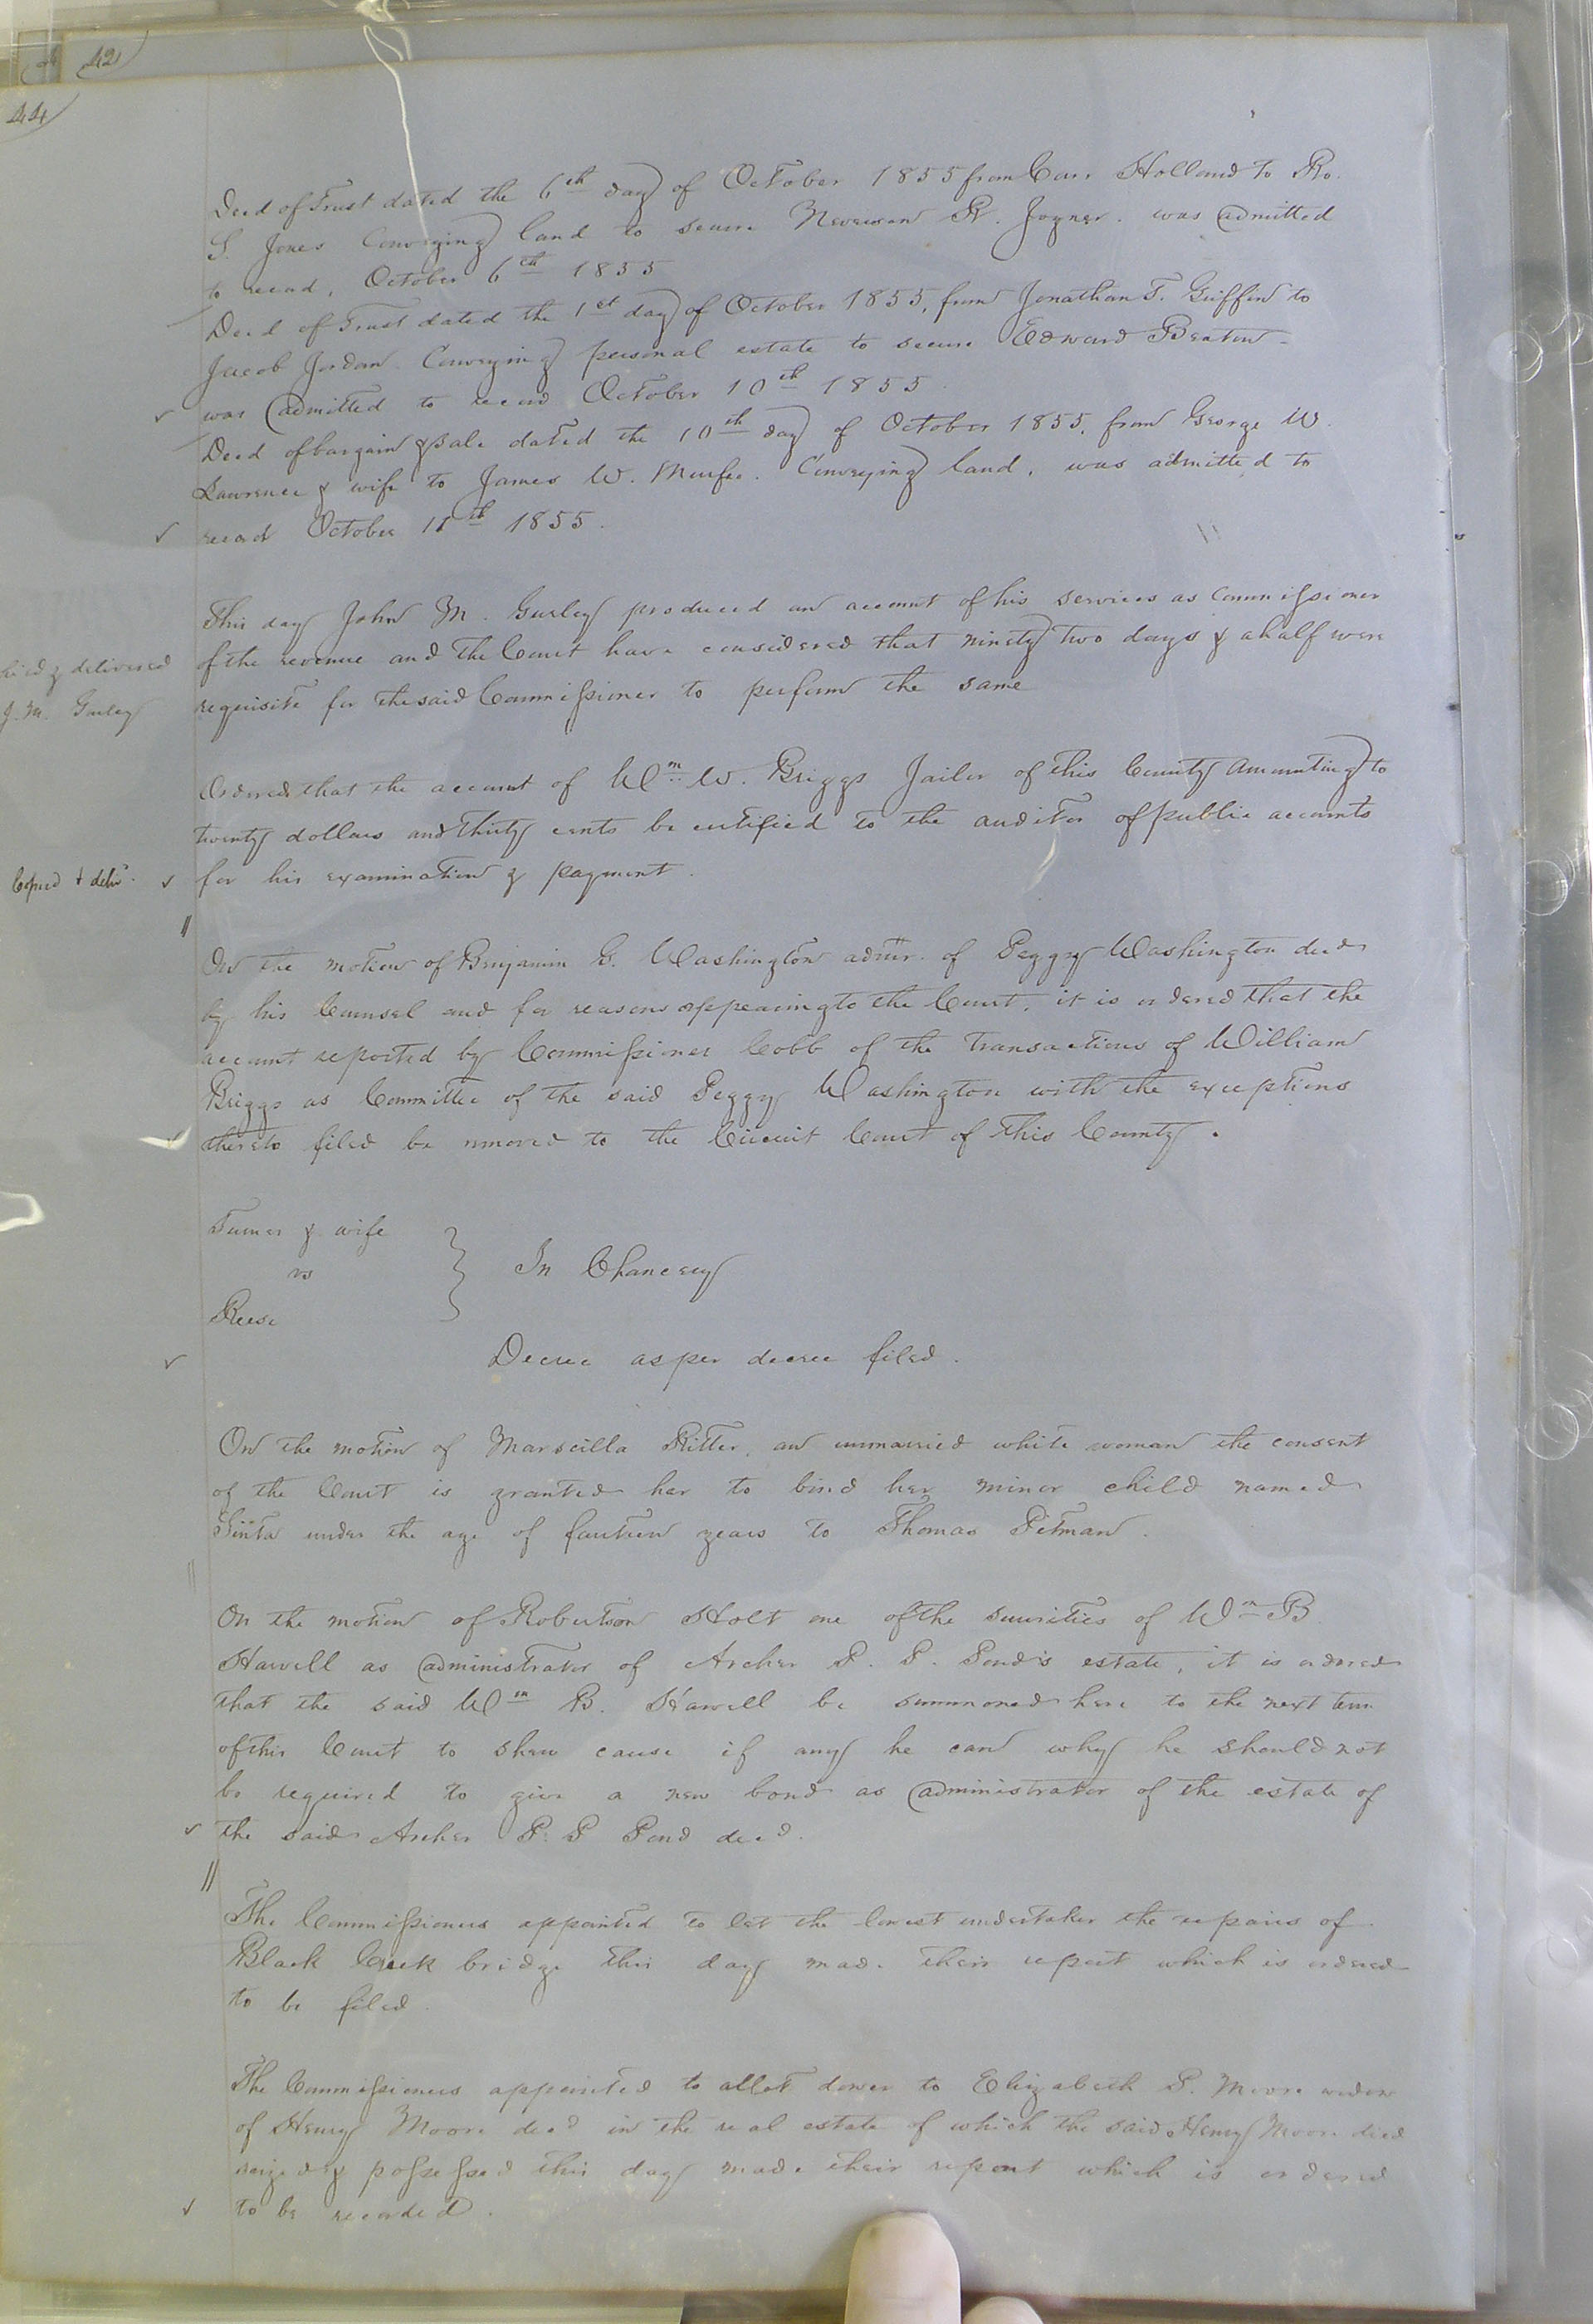 42
44
Deed of Trust dated the 6th day of October 1855 from Carr Holland to Ro.
S. Jones Conveying land to secure Neverson R. Joyner. was admitted
to record, October 6th 1855
Deed of Trust dated the 1st day of October 1855, from Jonathan T. Griffin to
Jacob Jordan Conveying personal estate to secure Edward Beaton
was admitted to record October 10th 1855
Deed of bargain & sale dated the 10th day of October 1855, from George W.
Lawrence & wife to James W. Murfee. Conveying land, was admitted to
record October 11th 1855.
This day John M. Gurley produced an account of his services as Commissioner
of the revenue and the Court have considered that ninety two days & a half were
requisite for the said Commissioner to perform the same
& delivered
J. M. Gurley
Ordered that the account of Wm W. Briggs Jailor of this County Amounting to
twenty dollars and thirty cents be certified to the auditor of public accounts
for his examination & payment.
Copied & deliv.
On the motion of Benjamin G. Washington admr. of Peggy Washington decd
by his Counsel and for reasons appearing to the Court, it is ordered that the
account reported by Commissioner Cobb of the transactions of William
Briggs as Committee of the said Peggy Washington with the exceptions
thereto filed be removed to the Circuit Court of this County.
Turner & wife
vs
In Chancery
Reese
Decree as per decree filed.
On the motion of Marscilla Ritter, an unmarried white woman the consent
of the Court is granted her to bind her minor child named
under the age of fourteen years to Thomas Pitman.
On the motion of Robertson Holt one of the securities of Wm B
Harvell as administrator of Archer P. P. Pond's estate, it is ordered
that the said Wm B. Harvell be summoned here to the next term
of this Court to shew cause if any he can why he should not
be required to give a new bond as administrator of the estate of
the said Archer P. P Pond decd.
The Commissioners appointed to let the lowest undertaker the repairs of
Black Creek bridge this day made their report which is ordered
to be filed.
The Commissioners appointed to allot dower to Elizabeth P. Moore widow
of Henry Moore decd in the real estate of which the said Henry Moore died
seized & possessed this day made their report which is ordered
to be recorded.